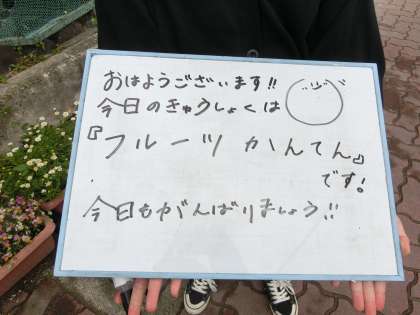 おはようございます!!
今日のきゅうしょくは
『フルーツ かんてん』
です!
今日もがんばりましょう!!